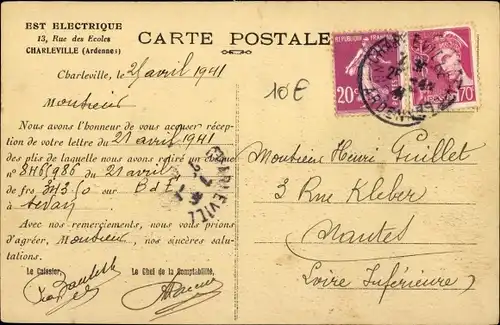 EST ELECTRIQUE
13, Rue des Ecoles
CHARLEVILLE (Ardennes)
CARTE POSTALE
Charleville, le 25 avril 1941
Monsieur
Nous avons l'honneur de vous accuser réception
de votre lettre du 21 avril 1941
des plis de laquelle nous avons retiré un chèque
n° 8465986 du 21 avril
de frs 343.50 sur B d F
à
Avec nos remerciements, nous vous prions
d'agréer, Monsieur, nos sincères salutations.
Le Caissier, Le Chef de la Comptabilité,
20c
70
10€
CHARLEVILLE
Monsieur Henri Guillet
3 Rue Kleber
Nantes
Loire Inférieure)